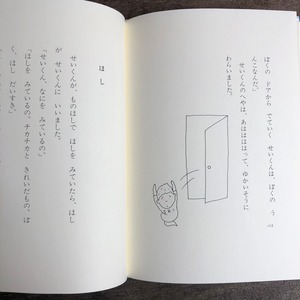 ぼくの ドアから でていく せいくんは、ぼくの う
んこなんだ。」
せいくんのへやは、あはははって、ゆかいそうに
わらいました。
ほし
せいくんが、ものほしで ほしを みていたら、ほし
が せいくんに いいました。
「せいくん、なにを みているの。」
「ほしを みているの。チカチカと きれいだもの。ぼ
く、ほし だいすき。」